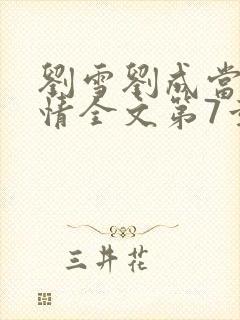 劉雪劉成當
情全文第7
三井花